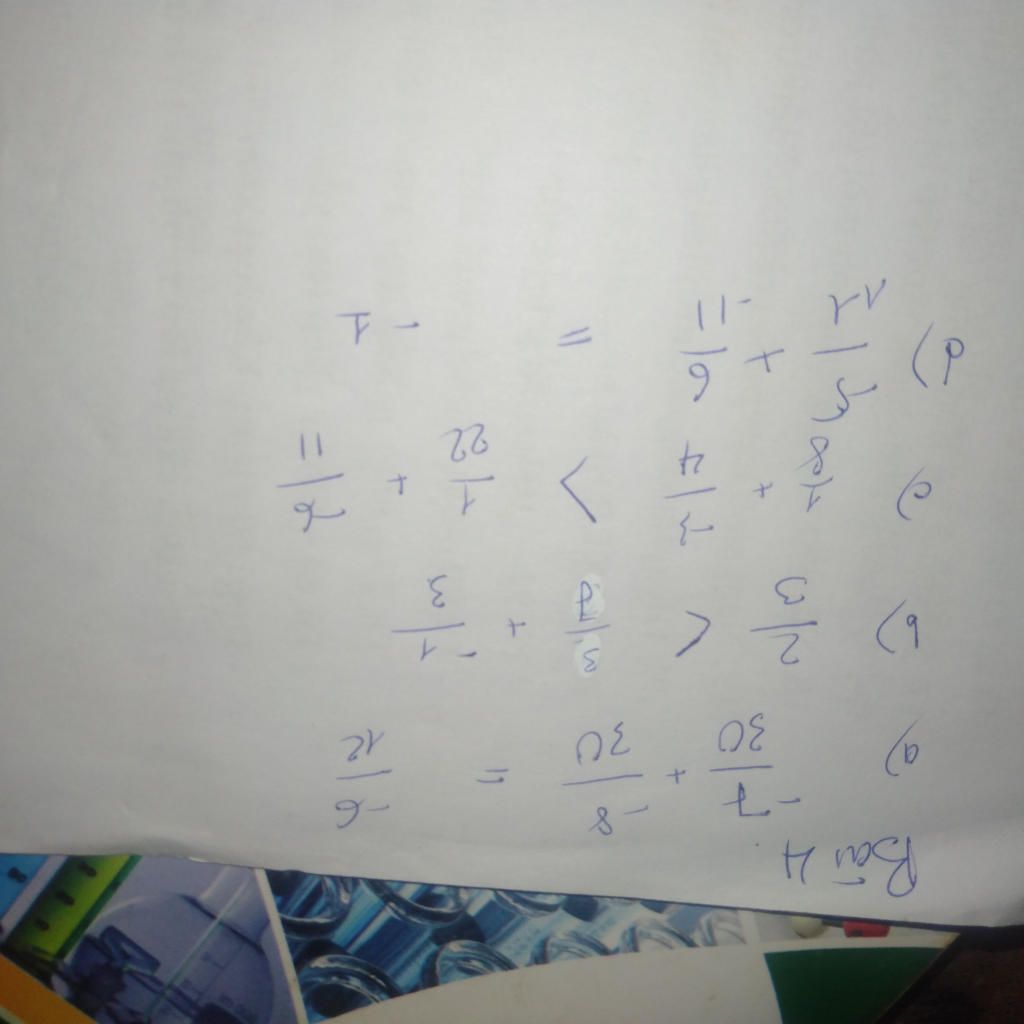 Bài 4
a) -7/30 + -8/30 = -6/12
b) 2/3 > 3/7 + -1/3
c) 1/8 + -3/4 > 1/22 + -6/11
d) -5/11 + 6/-11 = -1